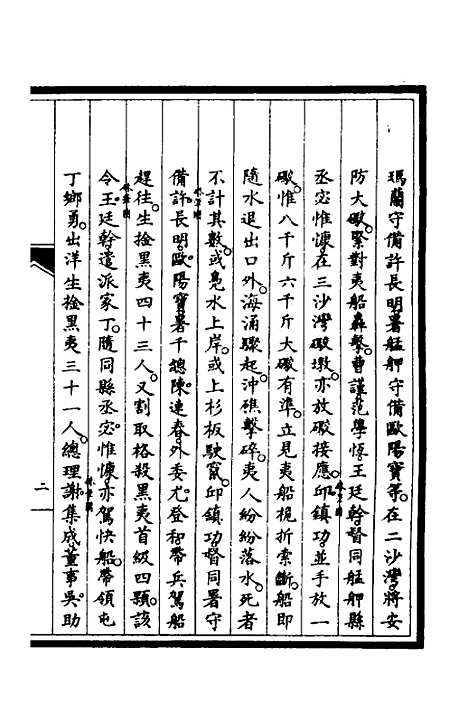 瑪蘭守備許長明署艋舺守備歐陽寶等在二沙灣將安
防大礟緊對夷船轟擊曹謹范學恆王廷幹督同艋舺縣
丞宓惟慷在三沙灣礟墩亦放礟接應邱鎮功並手放一
礟惟八千斤六千斤大礟有準立見夷船桅折索斷船即
隨水退出口外海涌驟起沖礁擊碎夷人紛紛落水死者
不計其數或鳧水上岸或上杉板駛竄邱鎮功督同署守
備許長明歐陽寶署千總陳連春外委尤登和帶兵駕船
趕往生擒黑夷四十三人又割取格殺黑夷首級四顆該
令王廷幹遣派家丁隨同縣丞宓惟慷亦駕快船帶領屯
丁鄉勇出洋生擒黑夷三十一人總理謝集成董事吳助
二